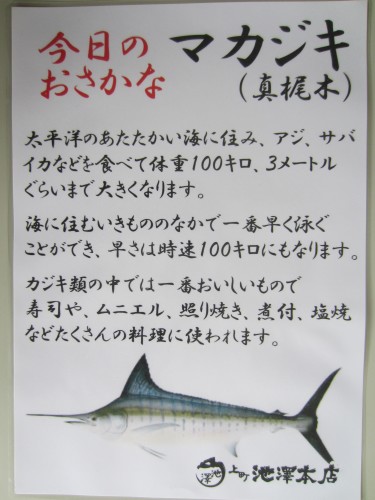 今日の
おさかな
マカジキ
(真梶木)
太平洋のあたたかい海に住み、アジ、サバ
イカなどを食べて体重100キロ、3メートル
ぐらいまで大きくなります。
海に住むいきもののなかで一番早く泳ぐ
ことができ、早さは時速100キロにもなります。
カジキ類の中では一番おいしいもので
寿司や、ムニエル、照り焼き、煮付、塩焼
などたくさんの料理に使われます。
池澤
上町 池澤本店